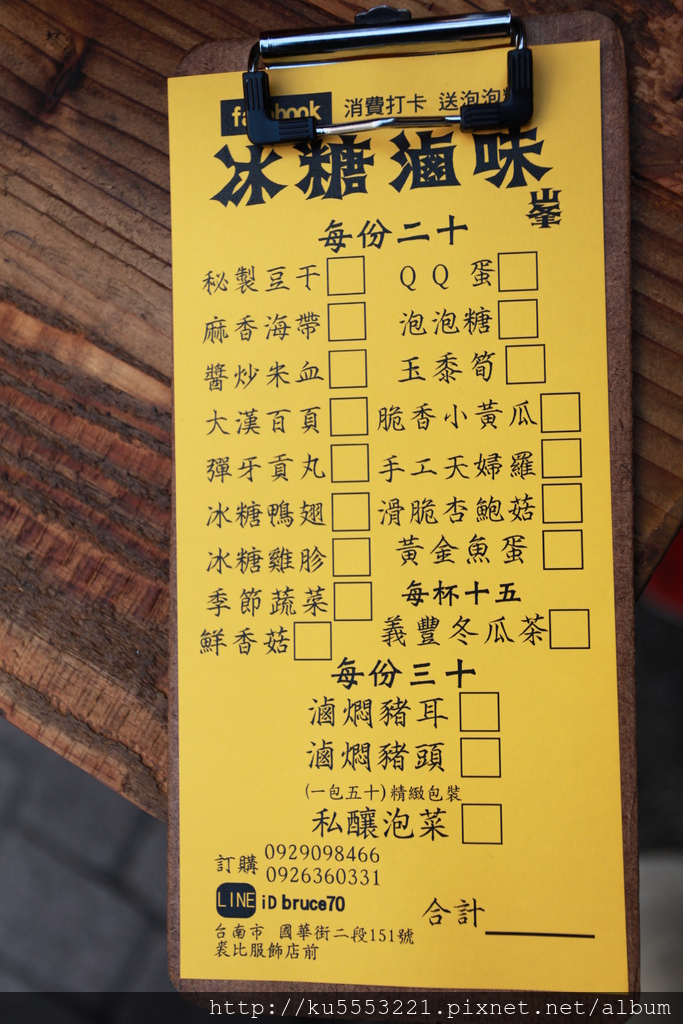 facebook 消費打卡 送泡泡糖
冰糖滷味
峯
每份二十
秘製豆干 QQ蛋
麻香海帶 泡泡糖
醬炒米血 玉黍筍
大漢百頁 脆香小黃瓜
彈牙貢丸 手工天婦羅
冰糖鴨翅 滑脆杏鮑菇
冰糖雞胗 黃金魚蛋
季節蔬菜 每杯十五
鮮香菇 義豐冬瓜茶
每份三十
滷燜豬耳
滷燜豬頭
(一包五十)精緻包裝
私釀泡菜
訂購 0929098466
0926360331
LINE iD bruce70
合計
台南市 國華街二段151號
裘比服飾店前
http://ku5553221.pixnet.net/album